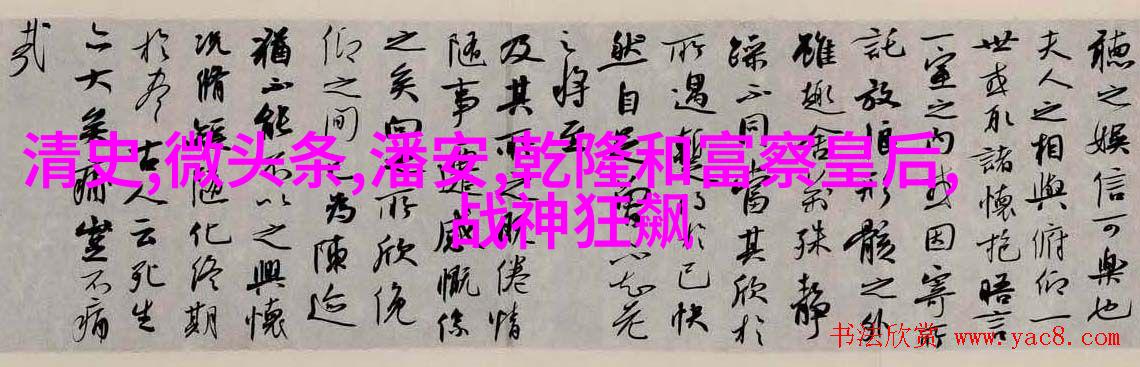 聽之娛信可樂也
夫人之相與俯仰一
世或取諸懷抱晤言
一室之內或因寄所
託放浪形骸之外
雖趣舍萬殊靜
躁不同當其欣於
所遇暫得於己快
然自足
之將至
及其所之既倦情
隨事遷感慨係
之矣向之所欣俛
仰之間為陳迹
猶不能不以之興懷
況脩短隨化終期
於盡古人云死生
亦大矣豈不痛
哉
清史,微头条,潘安,乾隆和富察皇后,
战神狂飙
书法欣赏 www.yac8.com